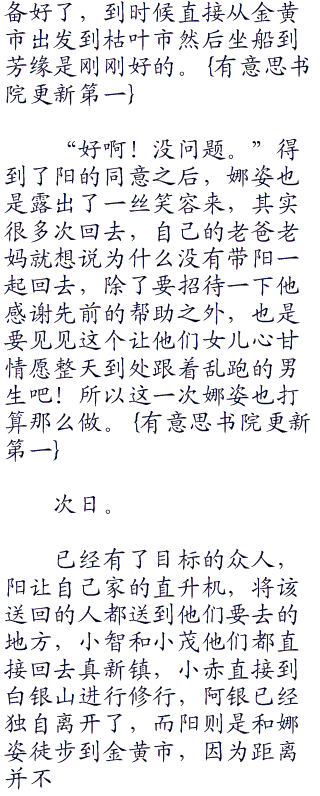 备好了，到时候直接从金黄
市出发到枯叶市然后坐船到
芳缘是刚刚好的。{有意思书
院更新第一}
“好啊！没问题。”得
到了阳的同意之后，娜姿也
是露出了一丝笑容来，其实
很多次回去，自己的老爸老
妈就想说为什么没有带阳一
起回去，除了要招待一下他
感谢先前的帮助之外，也是
要见见这个让他们女儿心甘
情愿整天到处跟着乱跑的男
生吧！所以这一次娜姿也打
算那么做。{有意思书院更新
第一}
次日。
已经有了目标的众人，
阳让自己家的直升机，将该
送回的人都送到他们要去的
地方，小智和小茂他们都直
接回去真新镇，小赤直接到
白银山进行修行，阿银已经
独自离开了，而阳则是和娜
姿徒步到金黄市，因为距离
并不